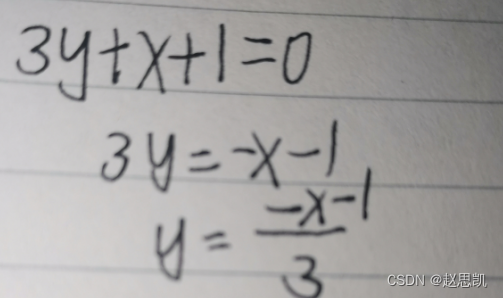 3y+x+1=0
3y=-x-1
y=\frac{-x-1}{3}
CSDN @赵思凯